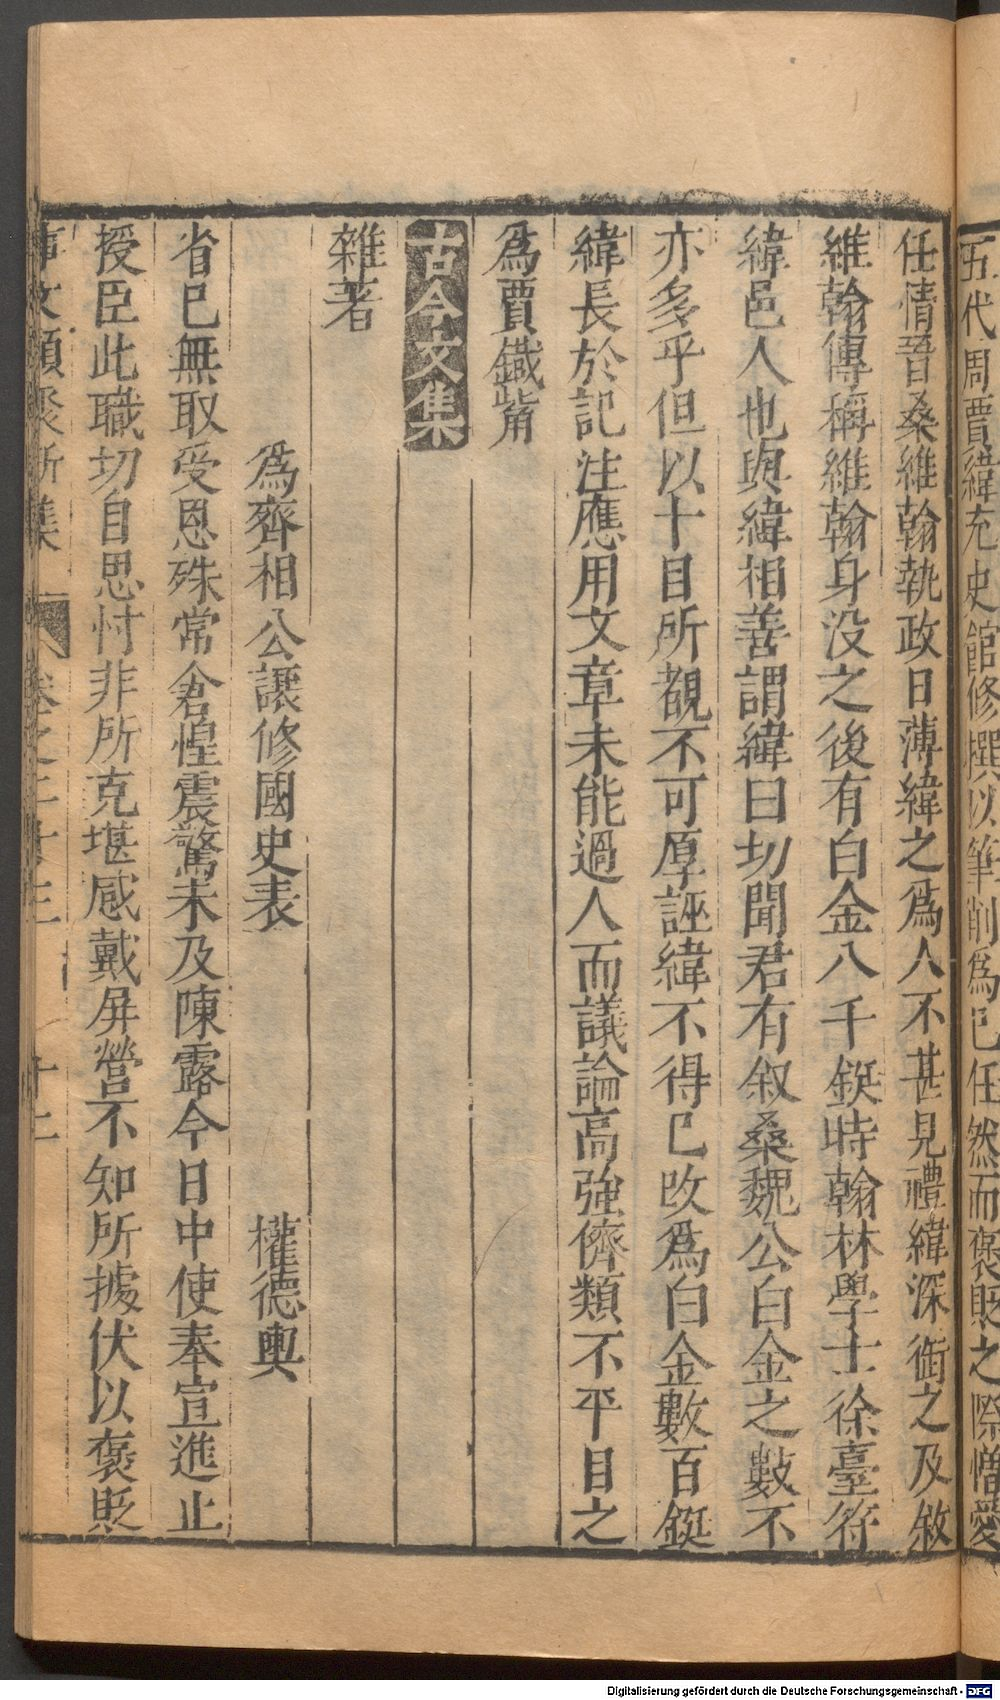 五代周賈緯充史館修撰以筆削爲己任然而褒貶之際憎愛
任情晉桑維翰執政日薄緯之爲人不甚見禮緯深銜之及敘
維翰傳稱維翰身没之後有白金八千鋌時翰林學士徐臺符
緯邑人也與緯相善謂緯曰切聞君有叙桑魏公白金之數不
亦多乎但以十目所覩不可厚誣緯不得已改爲白金數百鋌
緯長於記注應用文章未能過人而議論高強儕類不平目之
爲賈鐵觜
古今文集
雜著
爲齊相公讓修國史表 權德輿
省已無取受恩殊常倉惶震驚未及陳露今日中使奉宣進止
授臣此職切自思忖非所克堪感戴屏營不知所據伏以褒貶
事文類聚新集 卷之二十三 十二
Digitalisierung gefördert durch die Deutsche Forschungsgemeinschaft - DFG